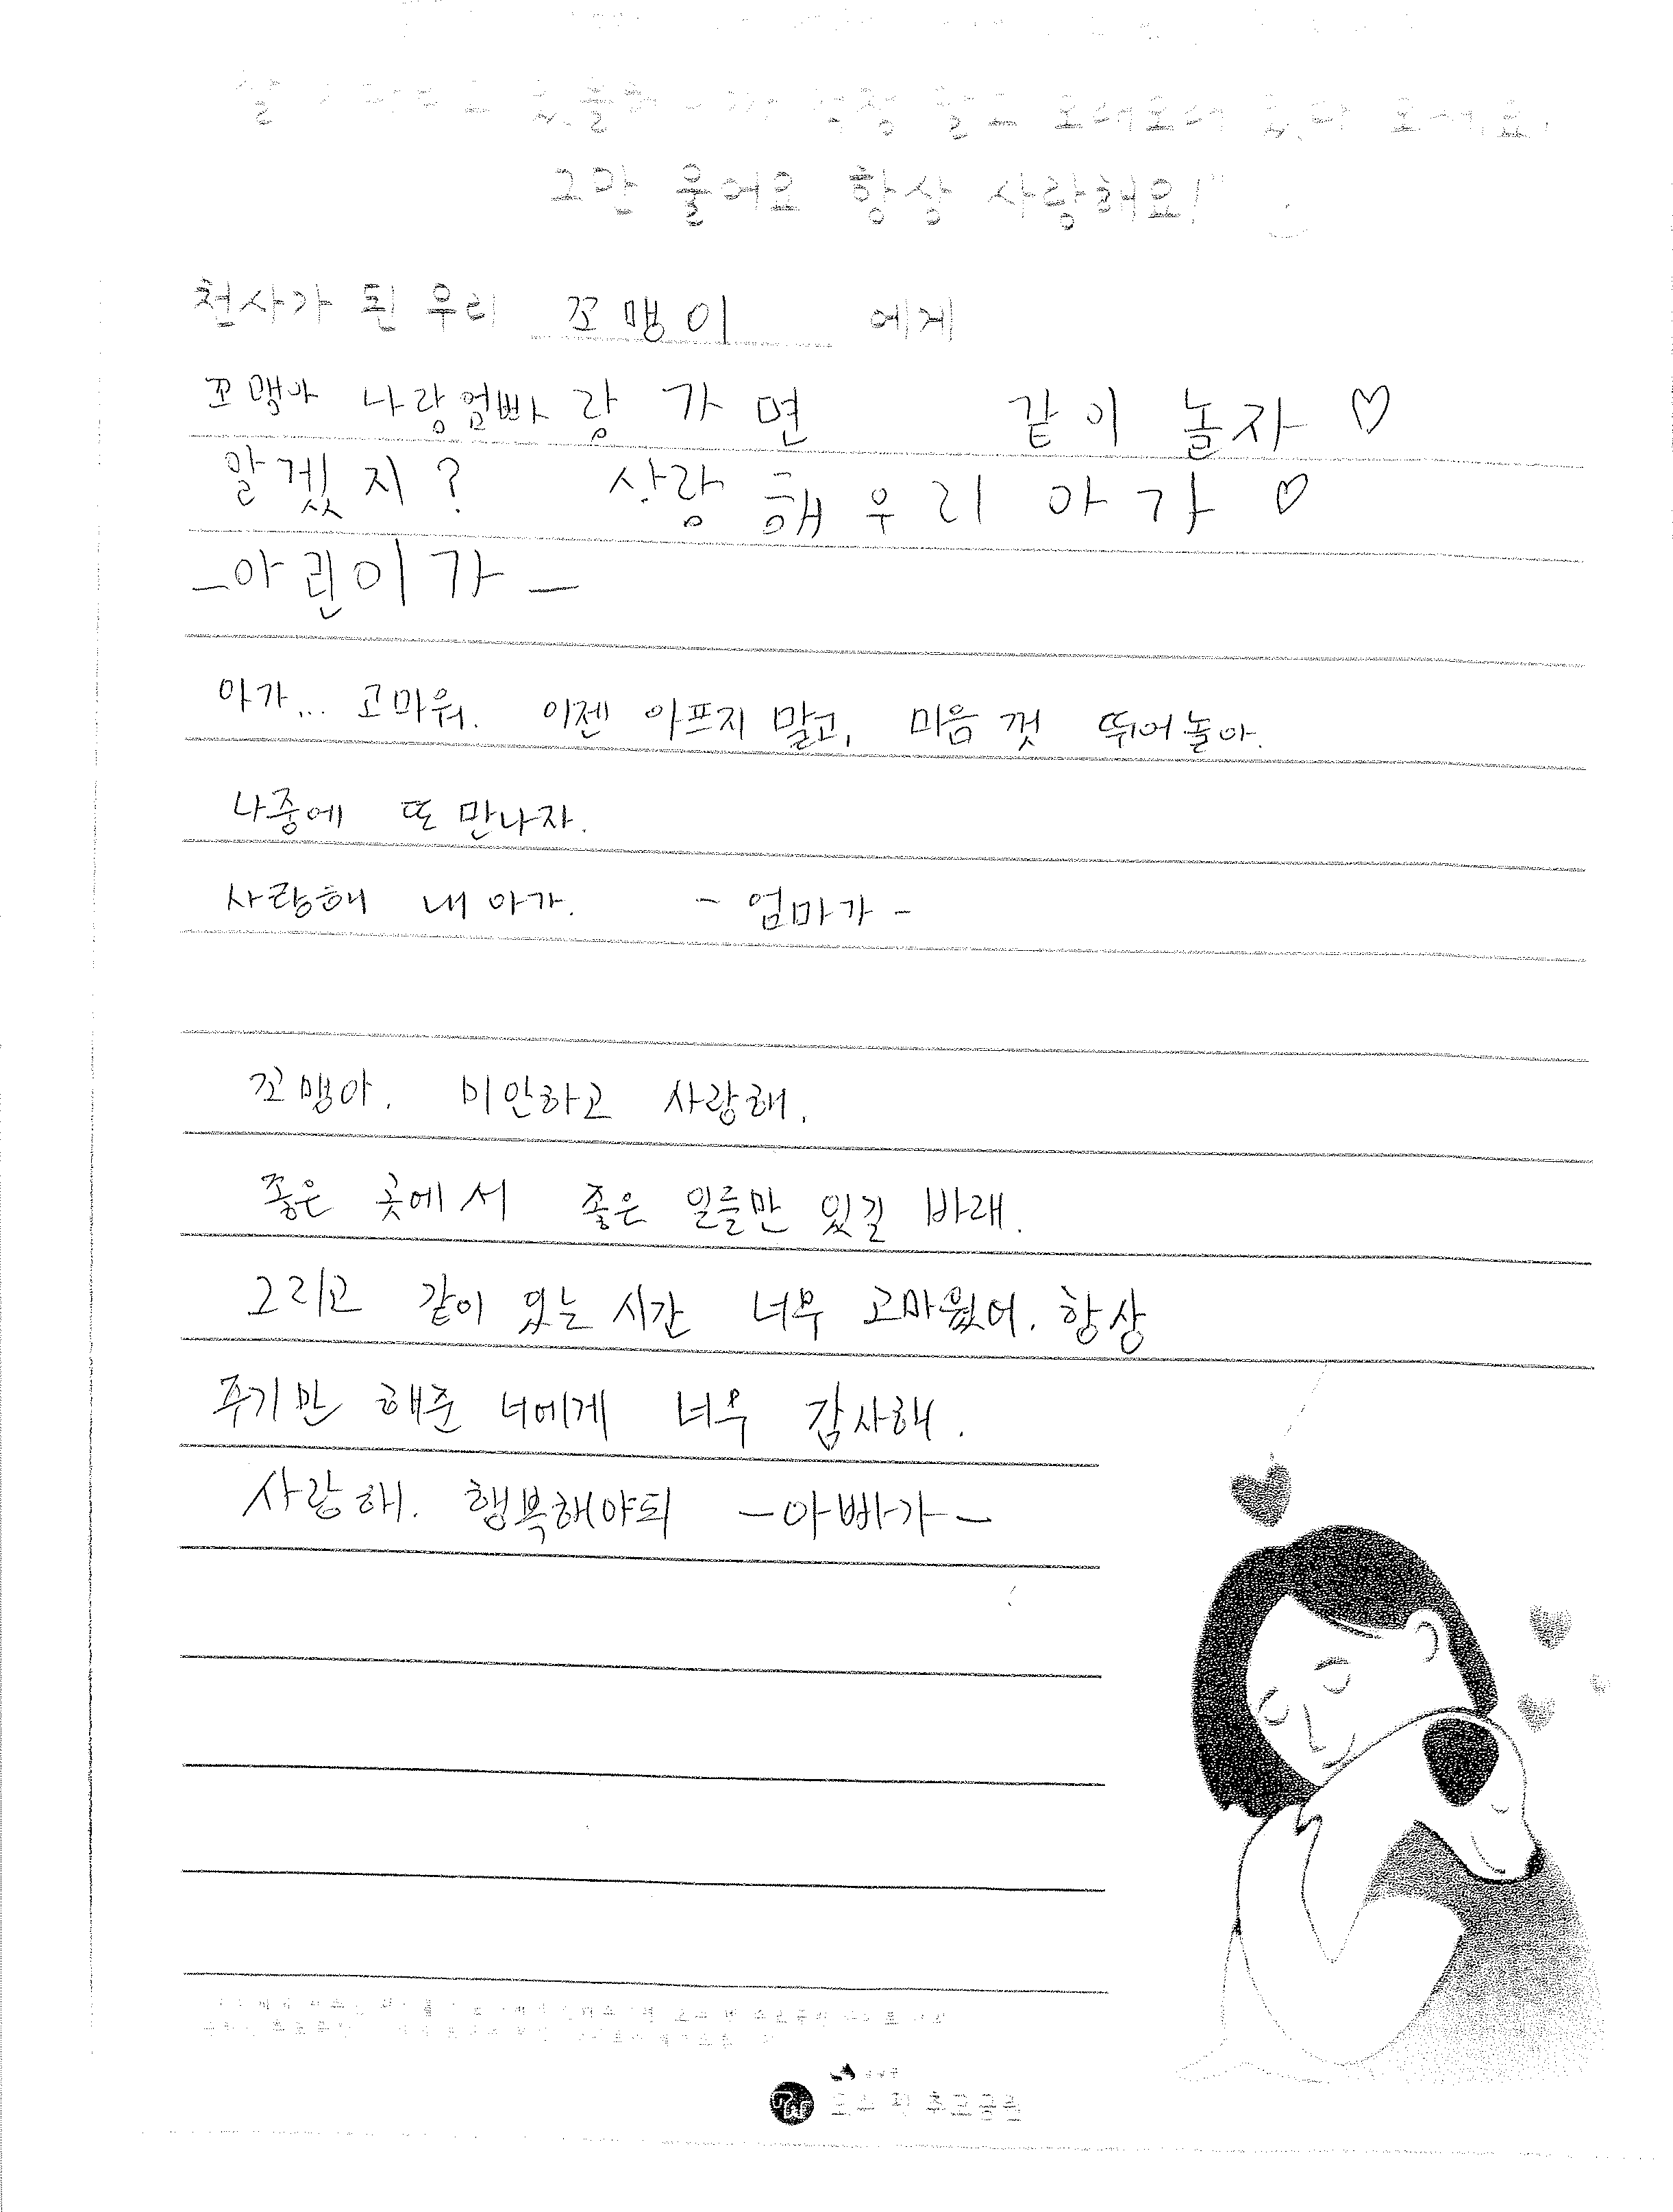 그만 울어요 항상 사랑해요!"
천사가 된 우리 꼬맹이 에게
꼬맹아 나랑엄빠랑 가면 같이 놀자 ♡
알겠지? 사랑해 우리 아가 ♡
-아린이가-
아가... 고마워. 이젠 아프지 말고, 마음 껏 뛰어놀아.
나중에 또 만나자.
사랑해 내 아가. - 엄마가 -
꼬맹아. 미안하고 사랑해.
좋은 곳에서 좋은 일들만 있길 바래.
그리고 같이 있는 시간 너무 고마웠어. 항상
주기만 해준 너에게 너무 감사해.
사랑해. 행복해야되 -아빠가-